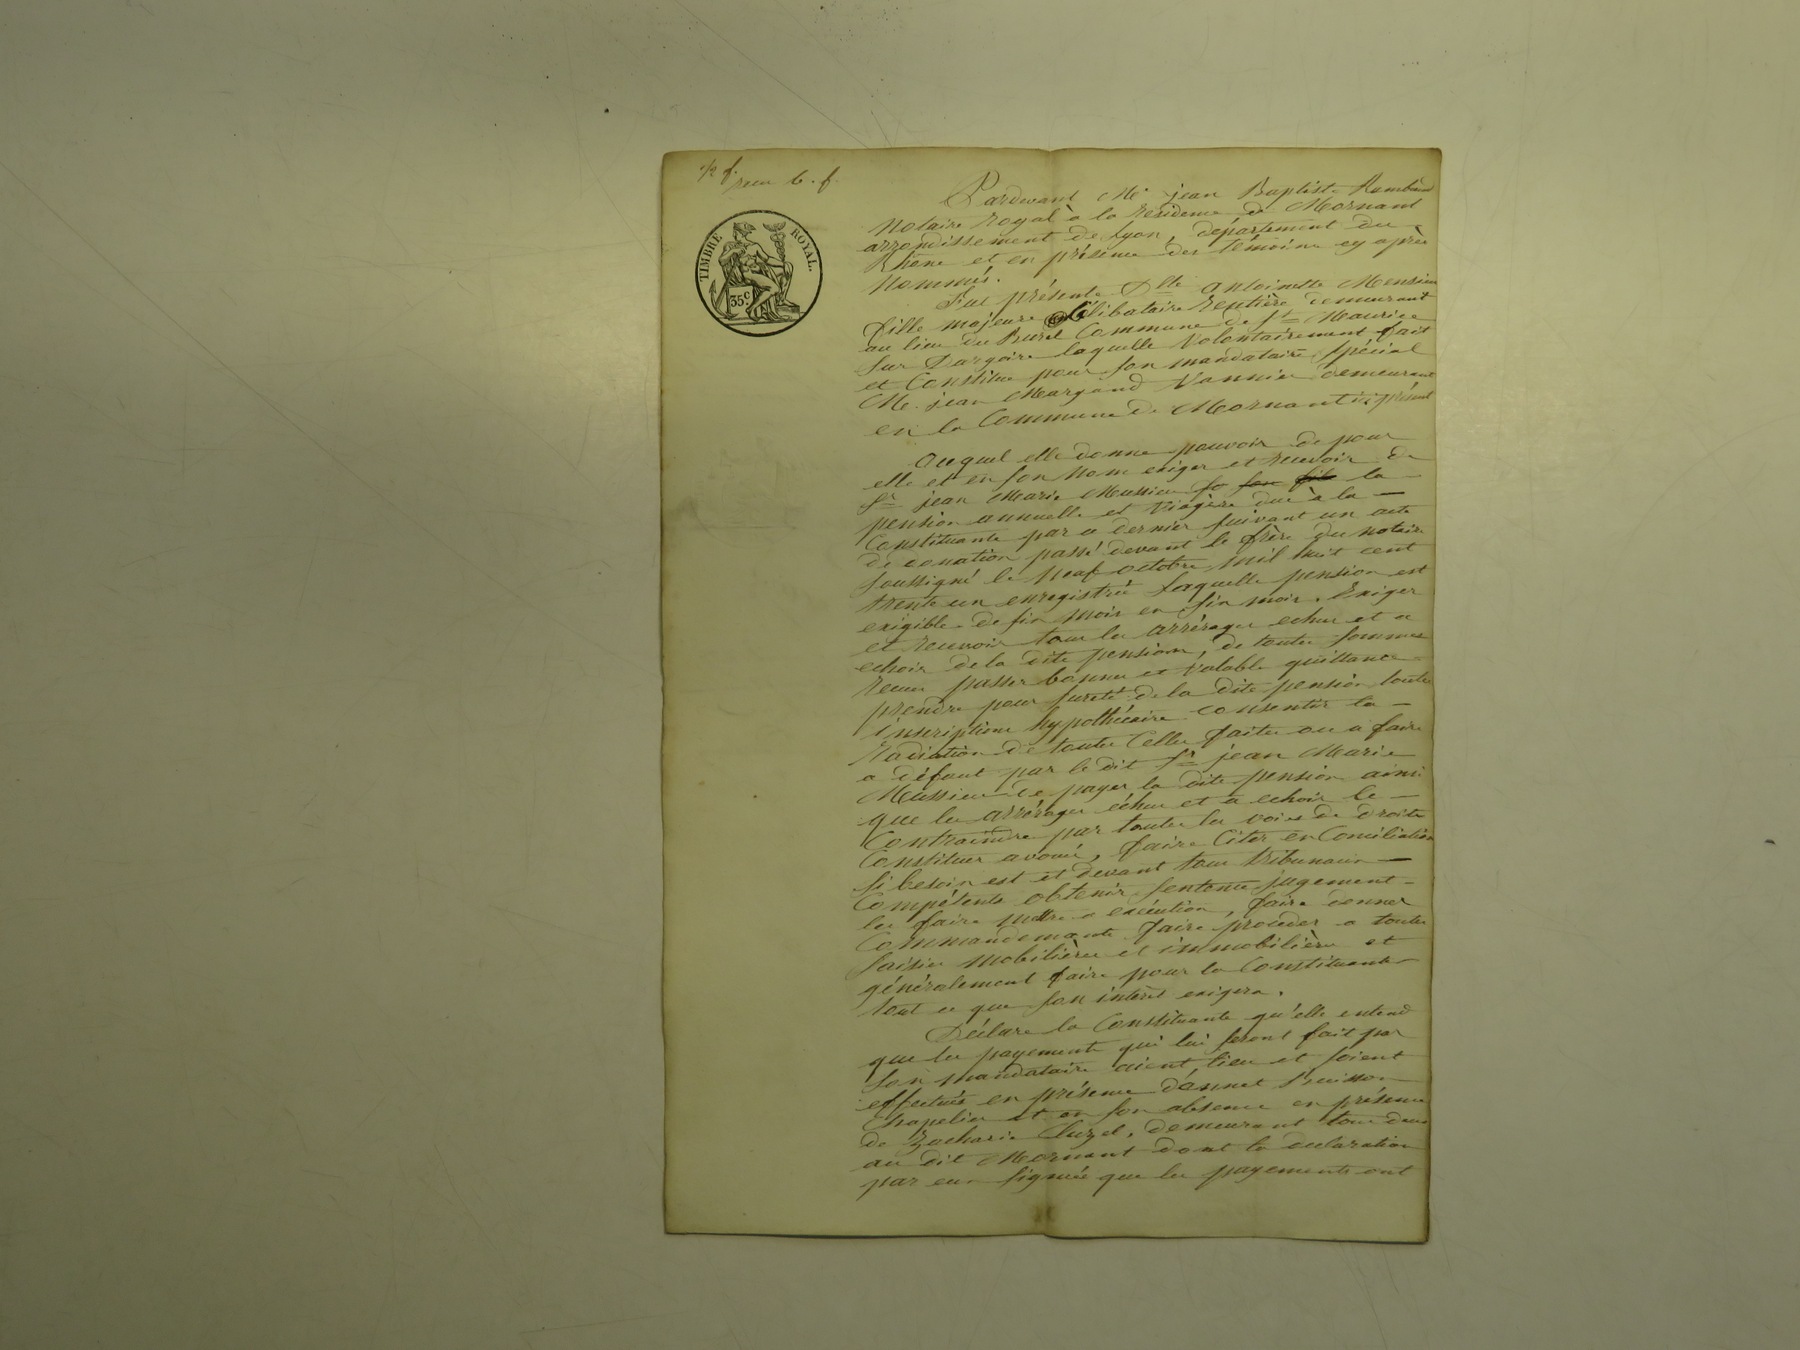 reçu 6. f.
TIMBRE ROYAL.
35 c.
Pardevant Me. jean Baptiste Rambaud
Notaire Royal à la residence de Mornant
arrondissement de Lyon, département du
Rhône et en présence des témoins cy après
Nommés.
Fut présente Dlle antoinette Meussieu
fille majeure Célibataire rentière demeurant
au lieu du Buret Commune de St Maurice
sur Dargoire laquelle Volontairement fait
et Constitue pour son mandataire spécial
M. jean Margand Vannier demeurant
en la Commune de Mornant ici présent
auquel elle donne pouvoir de pour
elle et en son nom exiger et recevoir de
Sr jean Marie Meussieu la
pension annuelle et Viagère due à la —
Constituante par ce dernier suivant un acte
de donation passé devant le frère du notaire
soussigné le neuf octobre mil huit cent
trente un enregistrée laquelle pension est
exigible de fin Mois en fin mois. Exiger
et recevoir tous les arrérages echus et a
echoir de la dite pension, de toutes sommes
recues passer bonnes et valable quittance
prendre pour sureté de la dite pension toutes
inscriptions hypothécaire consentir la —
radiation de toutes Celles faites ou a faire
a défaut par le dit Sr jean Marie
Meussieu de payer la dite pension ainsi
que les arrérages échus et a echoir le —
Contraindre par toutes les voies de droits
Constituer avoué, faire Citer en Conciliation
si besoin est et devant tous tribunaux —
Compétents obtenir sentence jugement —
les faire mettre a exécution, faire donner
Commandements faire proceder a toutes
saisies mobilières et immobilières et
généralement faire pour la Constituante
tout ce que son intérêt exigera.
Déclare la Constituante qu'elle entend
que les payements qui lui seront fait par
son mandataire aient lieu et soient
effectués en présence d'annet
Chapelier et en son absence en présence
de Zacharie Cluzel, demeurant tous deux
au dit Mornant dont la declaration
par eux signée que les payements ont